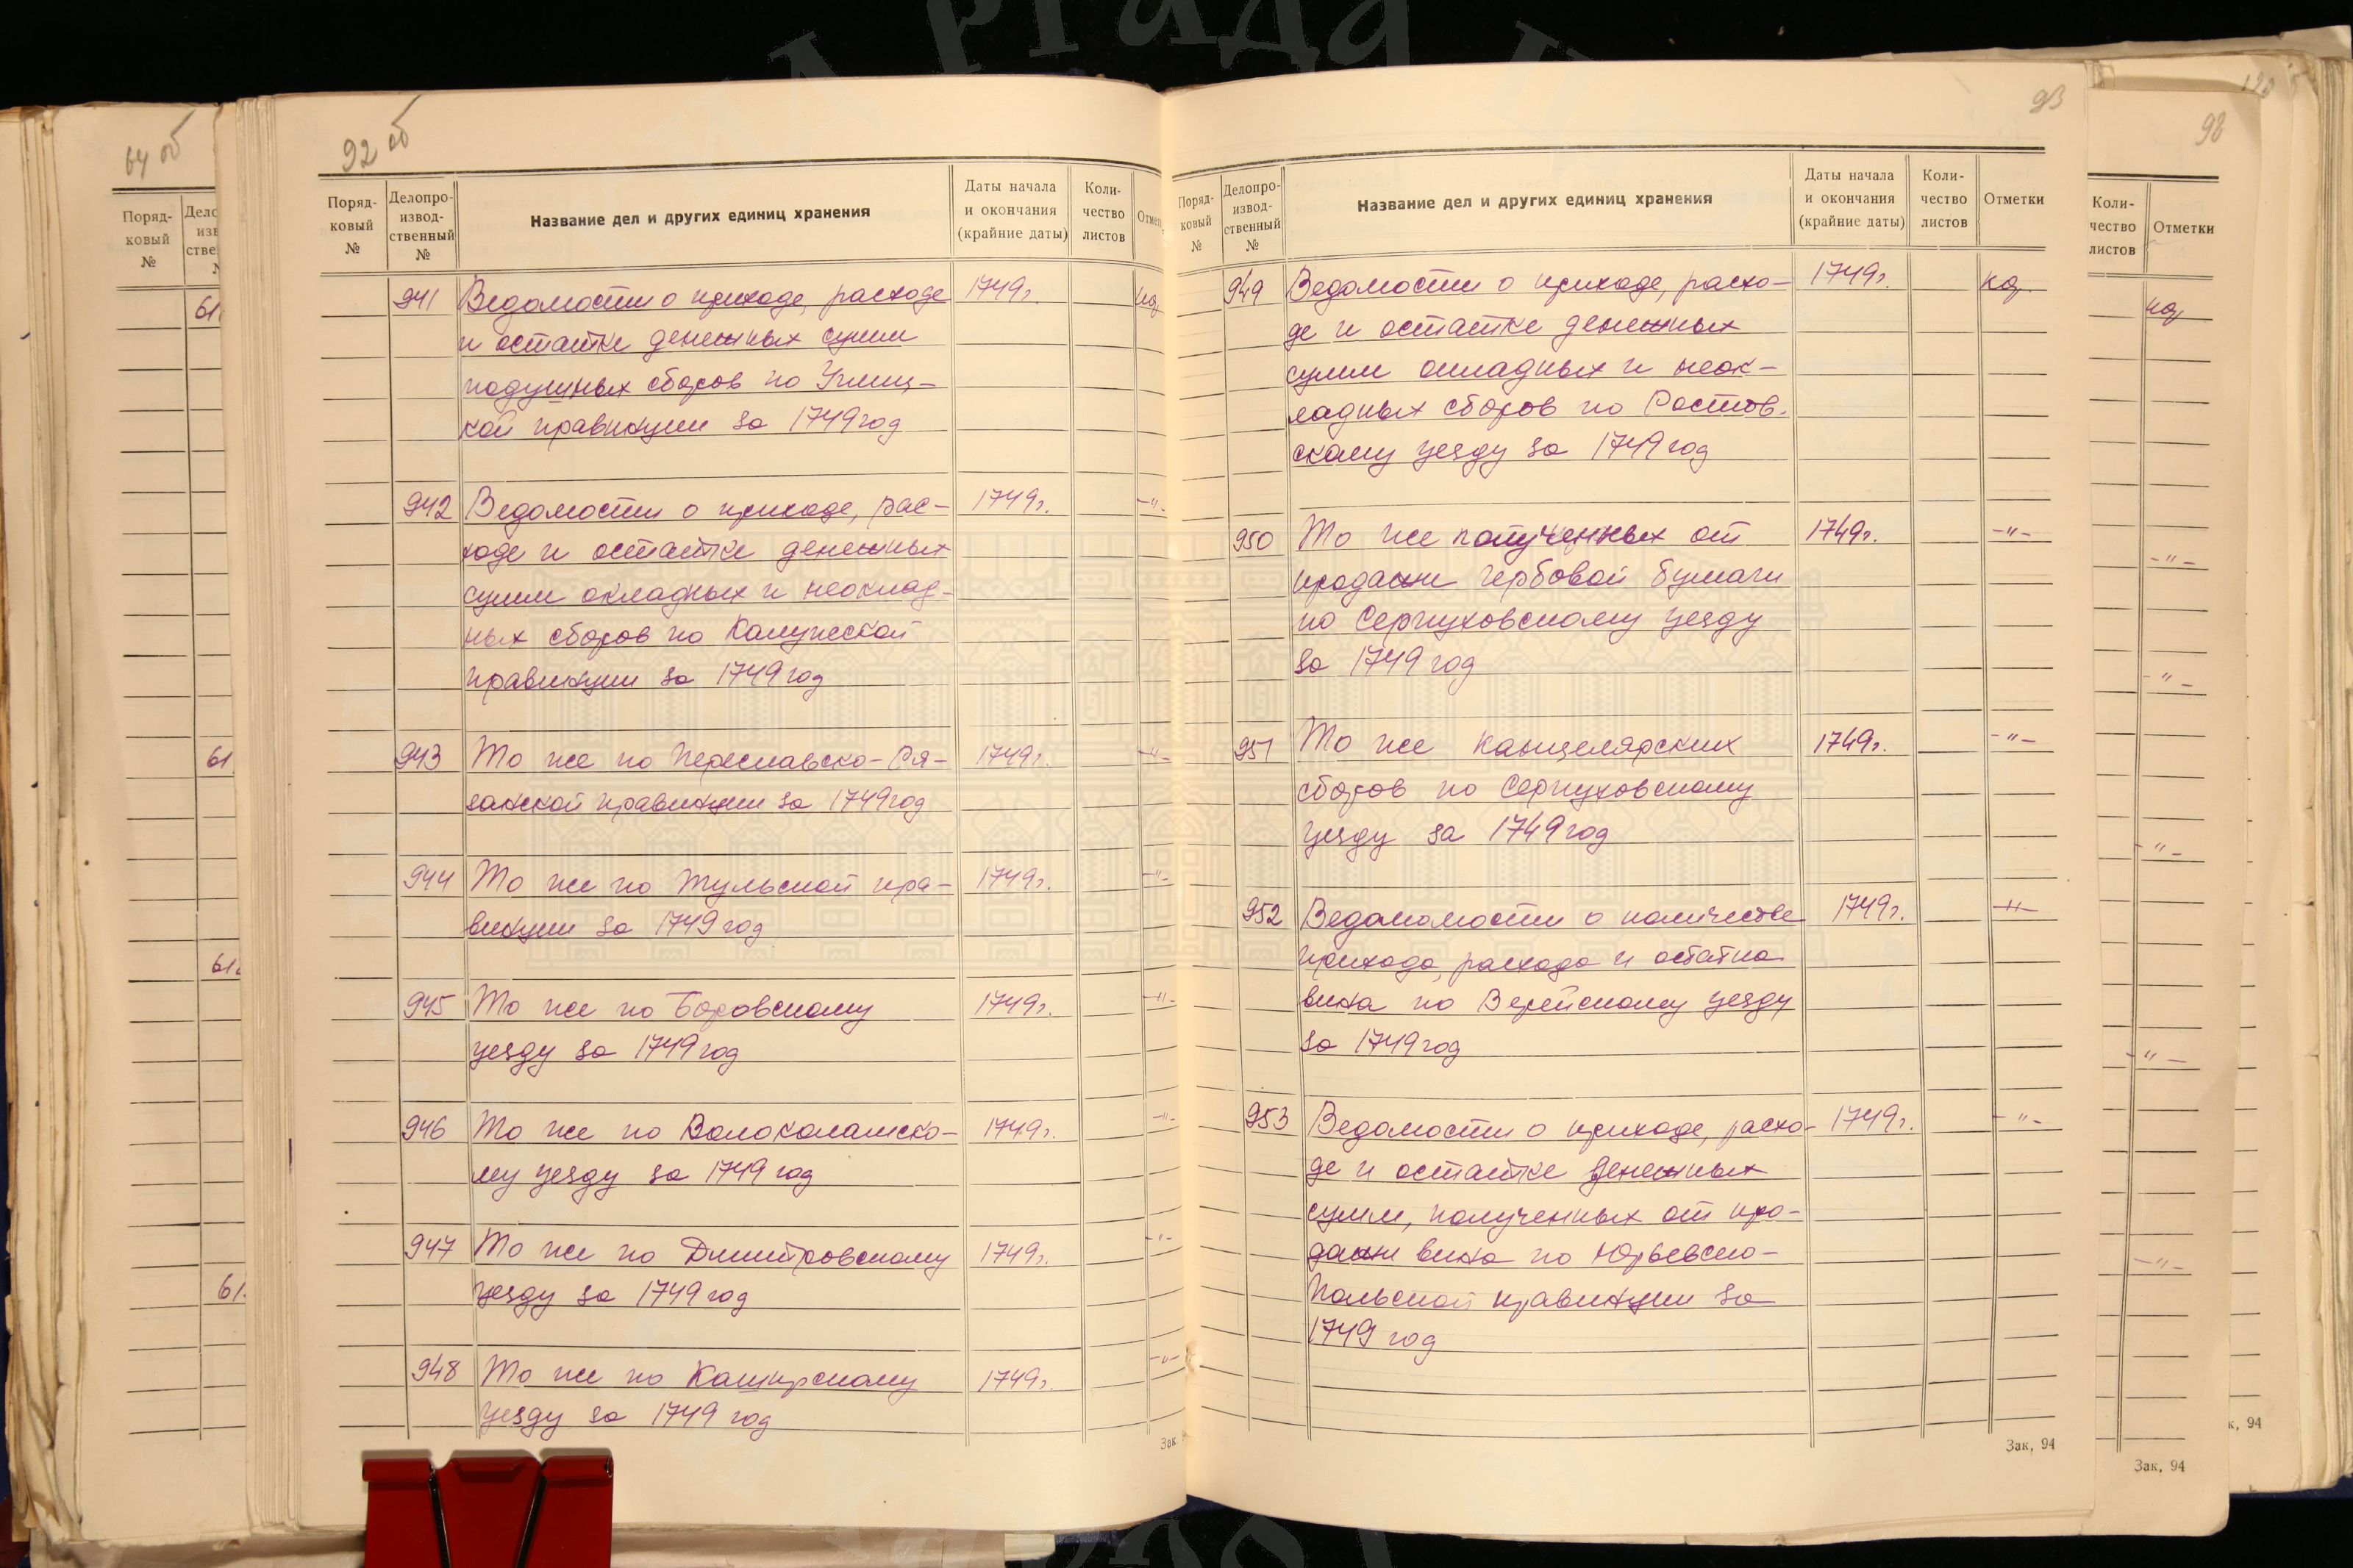 64 об
92 об
Поряд-
ковый
№
Делопро-
извод-
ственный
№
Название дел и других единиц хранения
Даты начала
и окончания
(крайние даты)
Коли-
чество
листов
941 Ведомости о приходе, расходе 1749г. кд
и остатке денежных сумм
подушных сборов по Углиц-
кой правинции за 1749 год
942 Ведомости о приходе, рас- 1749г. -"-
ходе и остатке денежных
сумм окладных и неоклад-
ных сборов по Калужской
правинции за 1749 год
943 То же по Переславско-Ря- 1749г. -"-
занской правинции за 1749 год
944 То же по Тульской пра- 1749г. -"-
винции за 1749 год
945 То же по Боровскому 1749г. -"-
уезду за 1749 год
946 То же по Волоколамско- 1749г. -"-
му уезду за 1749 год
947 То же по Дмитровскому 1749г. -"-
уезду за 1749 год
948 То же по Каширскому 1749г. -"-
уезду за 1749 год
Зак
93
Поряд-
ковый
№
Делопро-
извод-
ственный
№
Название дел и других единиц хранения
Даты начала
и окончания
(крайние даты)
Коли-
чество
листов
Отметки
949 Ведомости о приходе, расхо- 1749г. кд.
де и остатке денежных
сумм окладных и неок-
ладных сборов по Ростов-
скому уезду за 1749 год
950 То же полученных от 1749г. -"-
продажи гербовой бумаги
по Серпуховскому уезду
за 1749 год
951 То же канцелярских 1749г. -"-
сборов по Серпуховскому
уезду за 1749 год
952 Ведомомости о количестве 1749г. -"-
прихода, расхода и остатка
вина по Верейскому уезду
за 1749 год
953 Ведомости о приходе, расхо- 1749г. -"-
де и остатке денежных
сумм, полученных от про-
дажи вина по Юрьевско-
Польской правинции за
1749 год
Зак, 94
98
Коли-
чество
листов
Отметки
кд
-"-
-"-
-"-
-"-
-"-
Зак, 94
к, 94